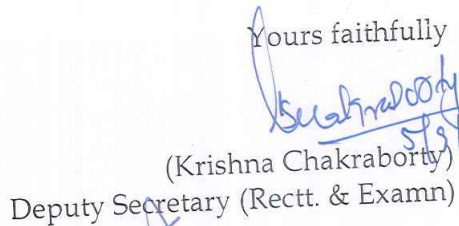 Yours faithfully
(Krishna Chakraborty)
Deputy Secretary (Rectt. & Examn)